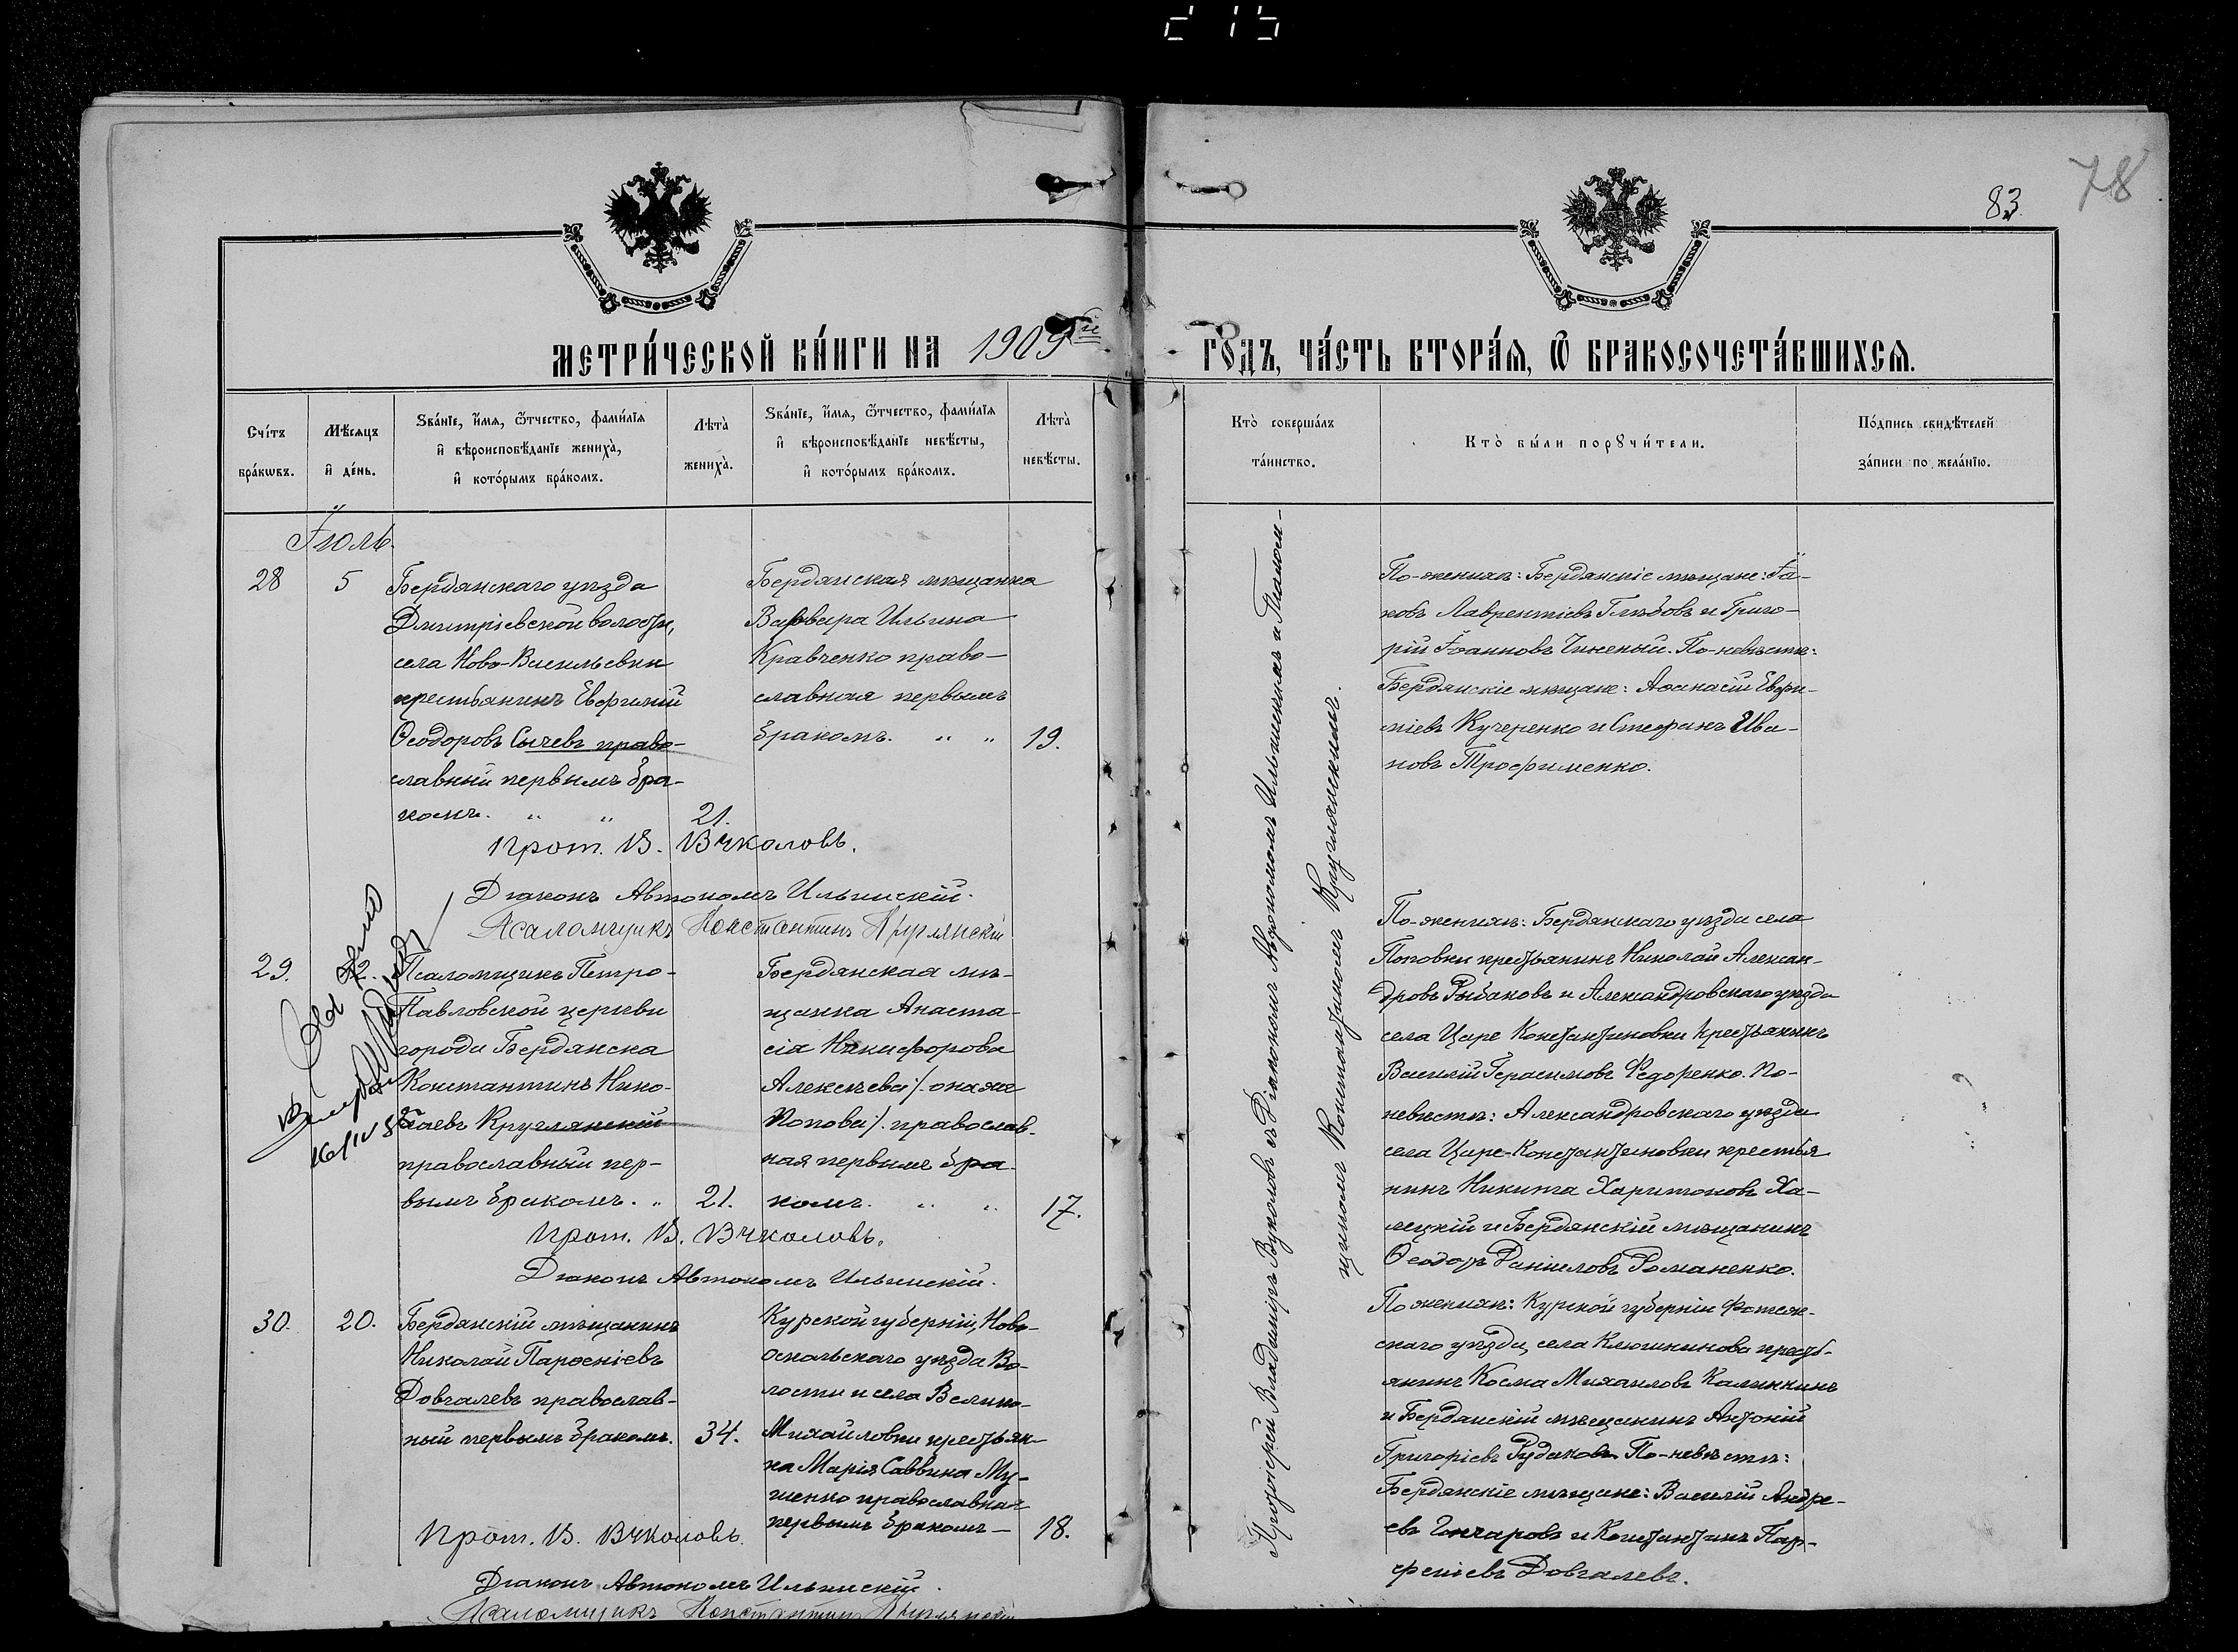 215
78
83
МЕТРИ́ЧЕСКОЙ КНИ́ГИ НА 1909й ГОДЪ, ЧА́СТЬ ВТОРА́Я, Ѿ БРАКОСОЧЕТА́ВШИХСЯ.
Сче́тъ бра́кѡвъ.
Мѣ́сяцъ и҆ де́нь.
Ѕва́нїе, и҆́мя, ѻ҆́тчество, фами́лїя и҆ вѣроисповѣ́данїе жениха̀, и҆ кото́рымъ бра́комъ.
Лѣта̀ жениха̀.
Ѕва́нїе, и҆́мя, ѻ҆́тчество, фами́лїя и҆ вѣроисповѣ́данїе невѣ́сты, и҆ кото́рымъ бра́комъ.
Лѣта̀ невѣ́сты.
Кто̀ соверша́лъ та́инство.
Кто̀ бы́ли порꙋчи́тели.
По́дпись свидѣ́телей за́писи по жела́нїю.
Іюль.
28
5
Бердянскаго уѣзда
Дмитріевской волости,
села Ново-Васильевки
крестьянинъ Евфимій
Ѳеодоровъ Сычевъ право-
славный первымъ бра-
комъ. " "
21.
Бердянская мѣщанка
Варвара Ильина
Кравченко право-
славная первымъ
бракомъ. " "
19.
Прот. В. Вуколовъ.
Діаконъ Автономъ Ильинскій.
Псаломщикъ Константинъ Круглянскій
По-женихѣ: Бердянскіе мѣщане: Іа-
ковъ Лаврентіевъ Глѣбовъ и Григо-
рій Іоанновъ Чиненый. По-невѣстѣ:
Бердянскіе мѣщане: Аѳанасій Евфи-
міевъ Кучеренко и Стефанъ Ива-
новъ Трофименко.
29.
12.
16/IV
Псаломщикъ Петро-
Павловской церкви
города Бердянска
Константинъ Нико-
лаевъ Круглянскій
православный пер-
вымъ бракомъ. "
21.
Бердянская мѣ-
щанка Анаста-
сія Никифорова
Алексѣева /: она же
Попова :/ православ-
ная первымъ бра-
комъ. " "
17.
Прот. В. Вуколовъ.
Діаконъ Автономъ Ильинскій.
По-женихѣ: Бердянскаго уѣзда села
Поповки крестьянинъ Николай Алексан-
дровъ Рыбаковъ и Александровскаго уѣзда
села Царе Константиновки крестьянинъ
Василій Герасимовъ Федоренко. По-
невѣстѣ: Александровскаго уѣзда
села Царе-Константиновки крестья
нинъ Никита Харитоновъ Ха-
лецкій и Бердянскій мѣщанинъ
Ѳеодоръ Даніиловъ Романенко.
30.
20.
Бердянскій мѣщанинъ
Николай Парѳеніевъ
Довгалевъ православ-
ный первымъ бракомъ.
34.
Курской губерніи, Ново-
оскольскаго уѣзда Во-
лости и села Велико-
Михайловки крестьян-
ка Марія Саввина
православная
первымъ бракомъ —
18.
Прот. В. Вуколовъ.
Діаконъ Автономъ Ильинскій.
Псаломщикъ Константинъ Круглянскій
По женихѣ: Курской губерніи Фатеж-
скаго уѣзда, села Клюшникова крест-
янинъ Косма Михаиловъ Калинкинъ
и Бердянскій мѣщанинъ Антоній
Григоріевъ Рудаковъ По-невѣстѣ:
Бердянскіе мѣщане: Василій Андре-
евъ Гончаровъ и Константинъ Пар-
феніевъ Довгалевъ.
Протоіерей Владиміръ Вуколовъ съ Діакономъ Автономомъ Ильинскимъ и Псалом-
щикомъ Константиномъ Круглянскимъ.